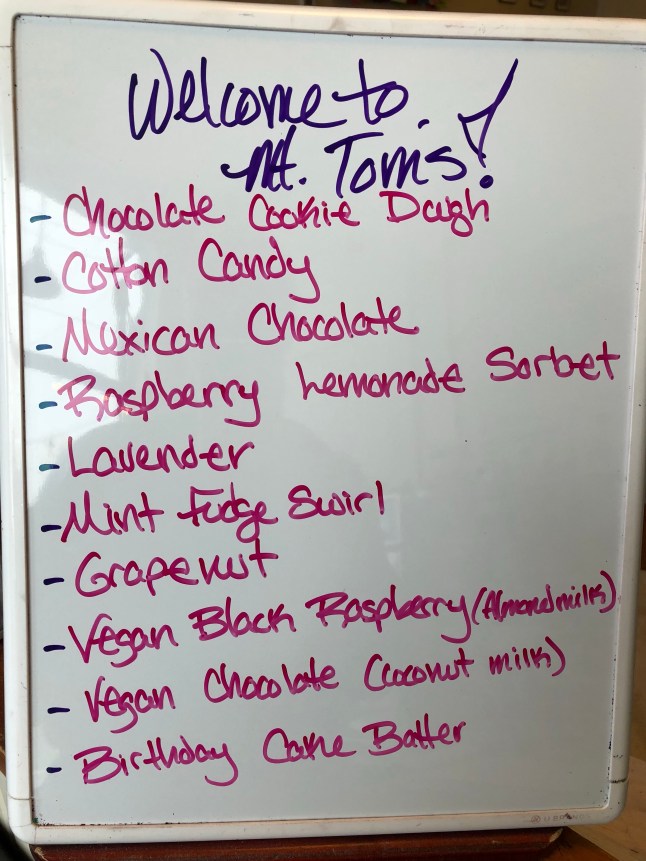 Welcome to
Mt. Tom's!
- Chocolate Cookie Dough
- Cotton Candy
- Mexican Chocolate
- Raspberry Lemonade Sorbet
- Lavender
- Mint Fudge Swirl
- Grapenut
- Vegan Black Raspberry (Almondmilk)
- Vegan Chocolate (Coconut milk)
- Birthday Cake Batter